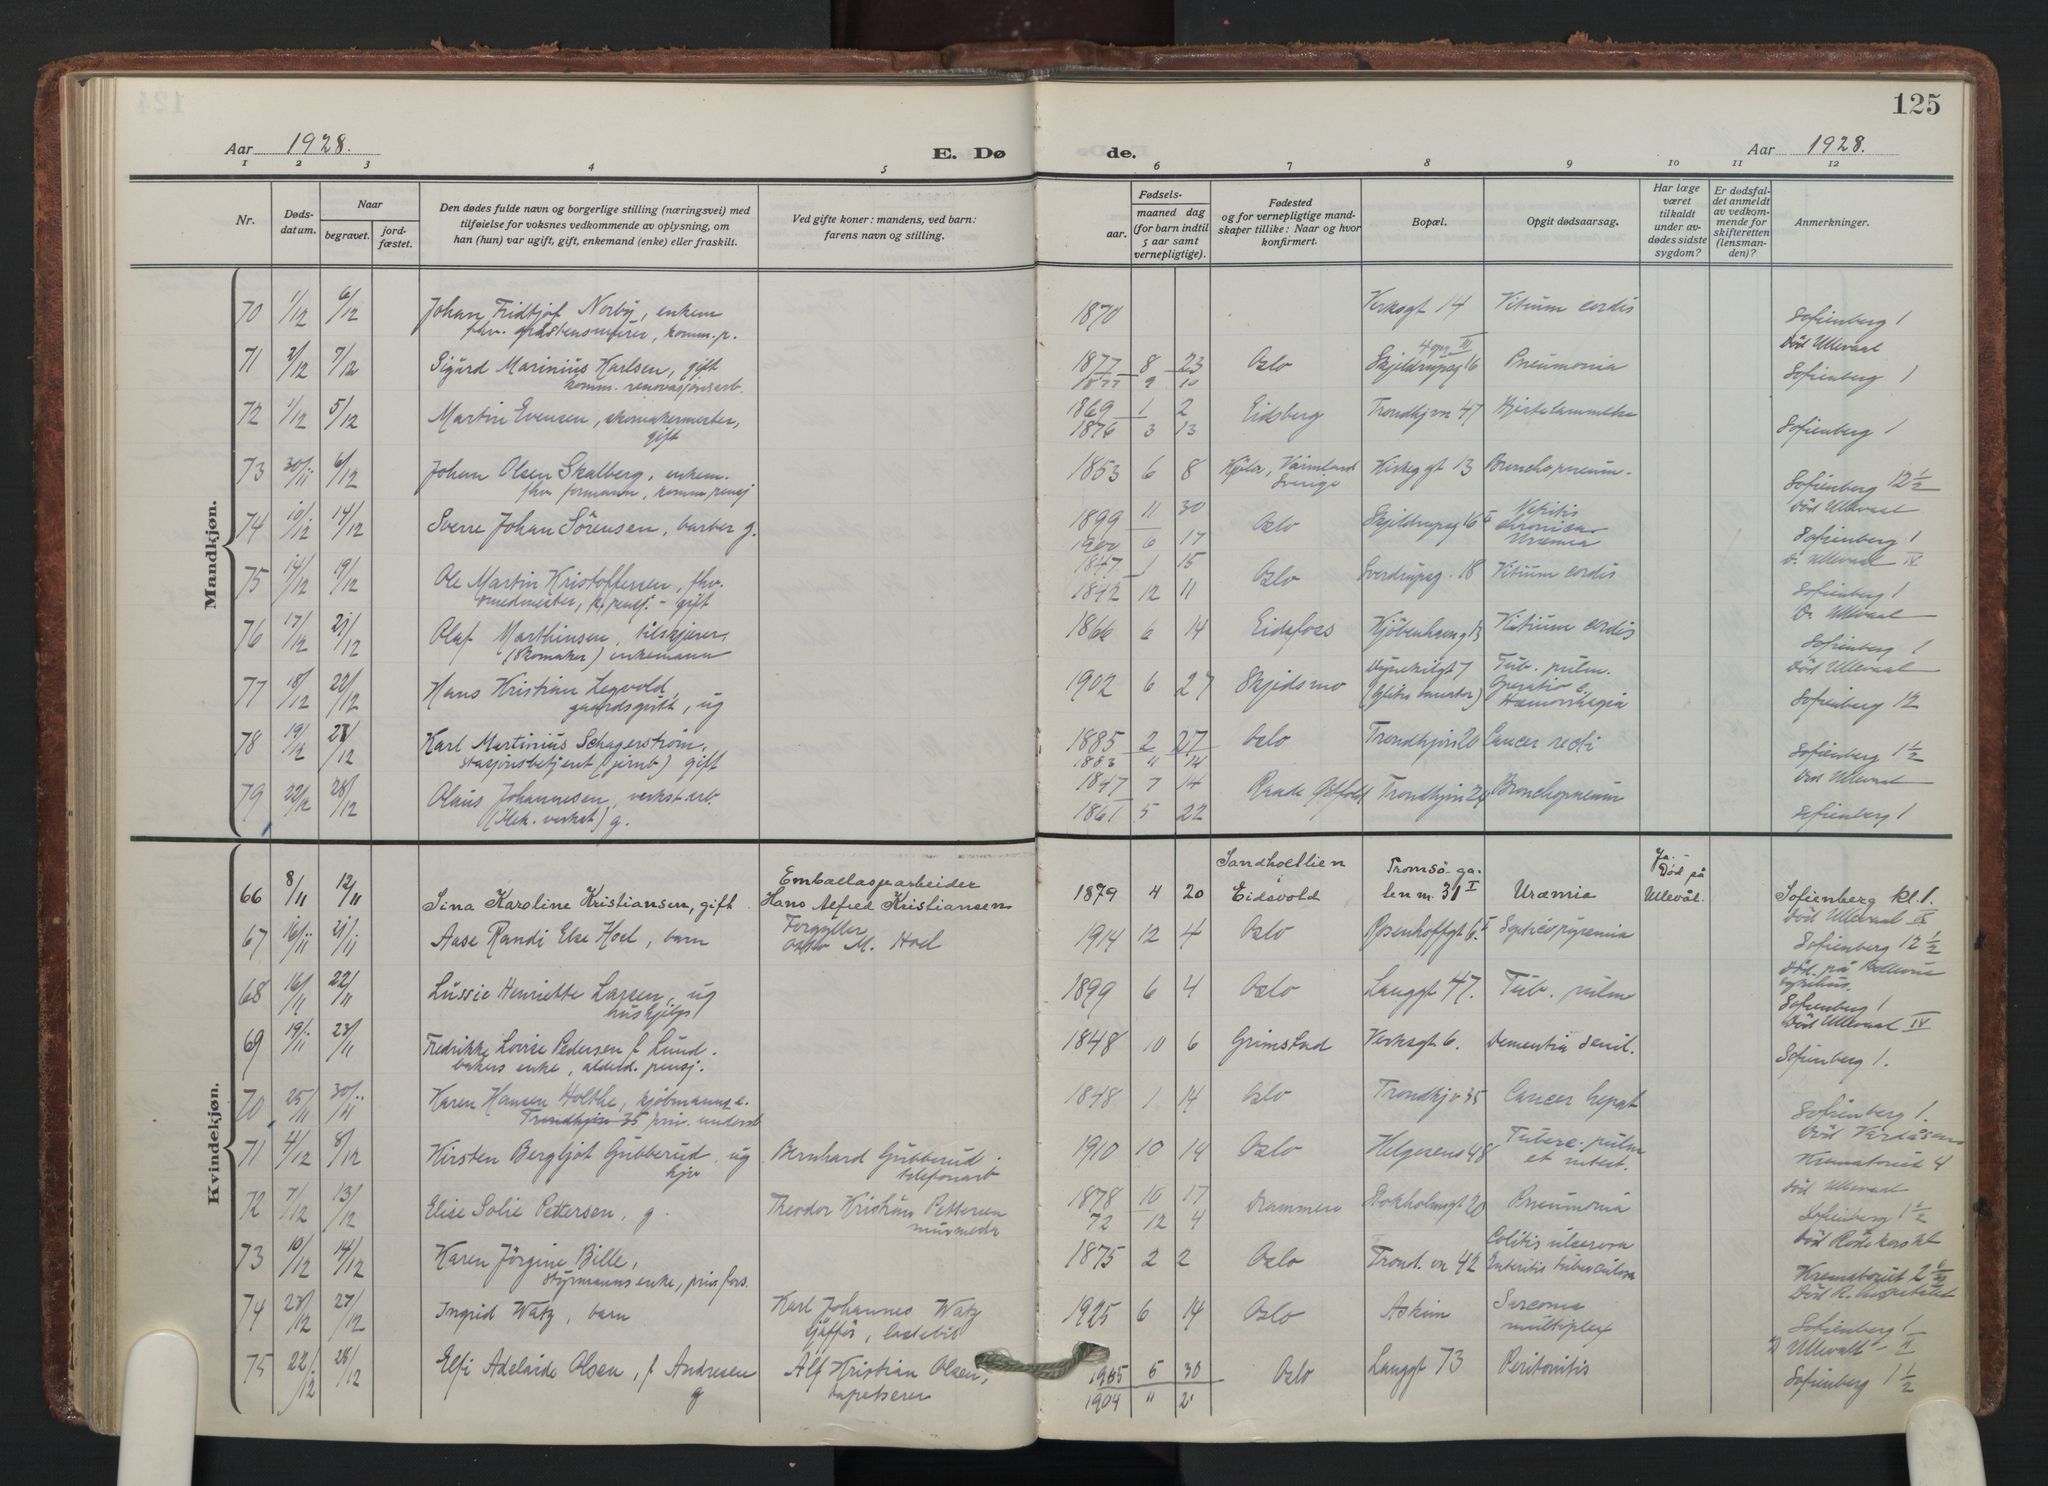 125
Aar 1928.
E. Dø de.
Aar 1928.
1 2 3 4 5 6 7 8 9 10 11 12
Nr.
Døds-datum.
Naar
begravet.
jord-fæstet.
Den dødes fulde navn og borgerlige stilling (næringsvei) med
tilføielse for voksnes vedkommende av oplysning, om
han (hun) var ugift, gift, enkemand (enke) eller fraskilt.
Ved gifte koner: mandens, ved barn:
farens navn og stilling.
Fødsels-
aar.
maaned dag
(for barn indtil
5 aar samt
vernepligtige).
Fødested
og for vernepligtige mand-
skaper tillike: Naar og hvor
konfirmert.
Bopæl.
Opgit dødsaarsag.
Har læge
været
tilkaldt
under av-
dødes sidste
sygdom?
Er dødsfal-
det anmeldt
av vedkom-
mende for
skifteretten
(lensman-
den)?
Anmerkninger.
Mandkjøn.
70 1/12 6/12 Johan Fridtjof Norby, enkem 1870 Verksgt 14 Vitium cordis Sofienberg 1
fhv. komm. p.
Død Ullevaal
71 2/12 7/12 Sigurd Marinius Karlsen, gift 1877 8 23 Oslo Skjeldrupsg 16 Pneumonia Sofienberg 1
komm. renovasjonsarb.
72 1/12 5/12 Martin Evensen, skomakermester, 1869 1 2 Eidsberg Trondhjvn 47 Hjertelammelse Sofienberg 1
gift 1876 3 13
73 30/11 6/12 Johan Olsen Skalberg, enkem. 1853 6 8 Värmland Sverige 13 Bronchopneum. Sofienberg 12 1/2
fhv. formann, komm. pensj
Død Ullevaal
74 10/12 14/12 Sverre Johan Sörensen, barber g. 1899 11 30 Oslo Skjeldrupsg 16 Nefritis chronica Uræmia Sofienberg 1
1900 6 17
D. Ullevaal IV
75 14/12 19/12 Ole Martin Kristoffersen, fhv. 1847 1 15 Oslo Sverdrupsg. 18 Vitium cordis Sofienberg 1
smedmester, k. pensj. - gift 1842 12 11
D. Ullevaal
76 17/12 21/12 Olaf Marthinsen, tilskjærer, 1866 6 14 Eidsfoss Kjöbenhavng 13 Vitium cordis Sofienberg 1
(skomaker) enkemann
Död Ullevaal
77 18/12 22/12 Hans Kristian Legvold, 1902 6 27 Skjedsmo Tub. pulm. Operatio Hæmorrhagia Sofienberg 12
gaardsgutt, ug
78 19/12 28/12 Karl Martinius Schagerström, 1885 2 27 Oslo Trondhjvn 20 Cancer recti Sofienberg 1 1/2
stasjonsbetjent (jernb) gift 1883 " 14
Död Ullevaal
79 22/12 28/12 Olaus Johannesen, verkst.arb. 1847 7 14 Raade Østfold Trondhjvn 24 Bronchopneum Sofienberg 1
(Mek. verkst) g. 1861 5 22
Kvindekjøn.
66 8/11 12/11 Sina Karoline Kristiansen, gift Emballasjearbeider Hans Alfred Kristiansen 1879 4 20 Sandholtlien Eidsvold Tromsö ga-ten nr. 31 I Uræmie Ja. Död på Ullevål. Sofienberg kl. 1.
Död Ullevaal IX
67 16/11 21/11 Aase Randi Else Hoel, barn Forgyller M. Hoel 1914 12 4 Oslo Rosenhoffgt 6 I Septicopyæmia Sofienberg 12 1/2
Död på Bellevue sykehus.
68 16/11 22/11 Lussie Henriette Larsen, ug 1899 6 4 Oslo Langgt 47. Tub. pulm Sofienberg 1
hushjelp
Död Ullevaal IV
69 19/11 23/11 Fredrikke Lovise Pedersen f. Lund. 1848 10 6 Grimstad Verksgt 6. Dementia senil. Sofienberg 1.
bakers enke, aldeld. pensj.
70 25/11 30/11 Karen Hansen Holthe, kjöbmanns e. 1848 1 14 Oslo Trondhjv 35 Cancer hepat Sofienberg 1.
Trondhjvn 35 priv. underst
Död Vardåsen
71 4/12 8/12 Kirsten Bergljot Gubberud, ug Bernhard Gubberud. 1910 10 14 Oslo Helgesens 48 Tuberc. pulm et intest. Krematoriet 4
telefonarb
Död Ullevaal
72 7/12 13/12 Elise Solie Pettersen, g. Theodor Kristian Pettersen 1878 10 17 Drammen Stokholmsgt 20 Pneumonia Sofienberg 1 1/2
72 12 4
Död Rödekors kl
73 10/12 14/12 Karen Jörgine Bille, 1875 2 2 Oslo Trond. vn 42 Colitis ulcerosa Enteritis tuberculosa Krematoriet 2 1/2
styrmanns enke, priv. fors.
Död R. hospitalet
74 23/12 27/12 Ingrid Watz, barn Karl Johannes Watz 1925 6 14 Oslo Askim Sarcoma multiplex Sofienberg 1
Ullevåll II
75 22/12 28/12 Elfi Adelaide Olsen, f. Andresen Alf Kristian Olsen, 1905 5 30 Oslo Langgt 73 Peritonitis Sofienberg 1 1/2
g tapetserer 1904 " 2